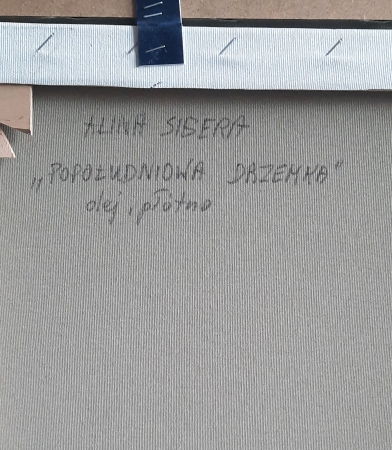 ALINA SIBERA
„POPOŁUDNIOWA DRZEMKA"
olej, płótno